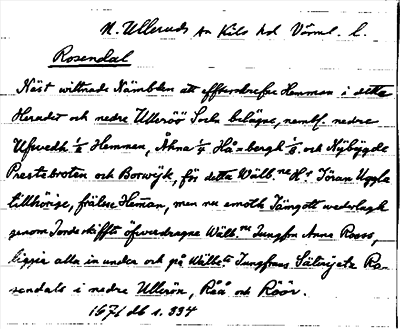 N. Ulleruds sn Kils hd Värml. l.
Rosendal
Näst witnade Nämbden att effterskrefne Hemman i detta
Heradet och nedre Ulleröö Sochn belägne, nembl. nedre
Ufwedh 1/2 Hemman, Åkna 1/4 Håsbergh 1/8 och Nybygdt
Prestebroten och Borwijk, för detta Wälb.ne H:r Jöran Uggla
tillhörige, frälse Heman, men nu emoth Jämgott wederlagh
genom Jordeskiffte öfwerdragne Wälb.ne Jungfru Anna Rooss,
liggia alla in under och på Wälb:te Jungfruns Sätterijetz Ro-
sendals i nedre Ullerön, Råå och Röör.
1671 db s. 334